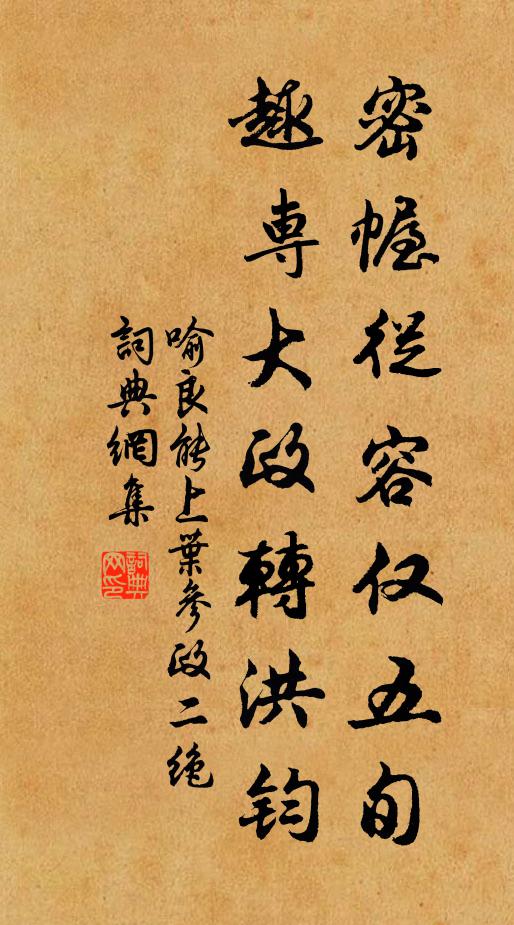 密幄從容仅五旬
趣専大政轉洪钧
喻良能上葉參政二绝
詞典網集
詞典网印